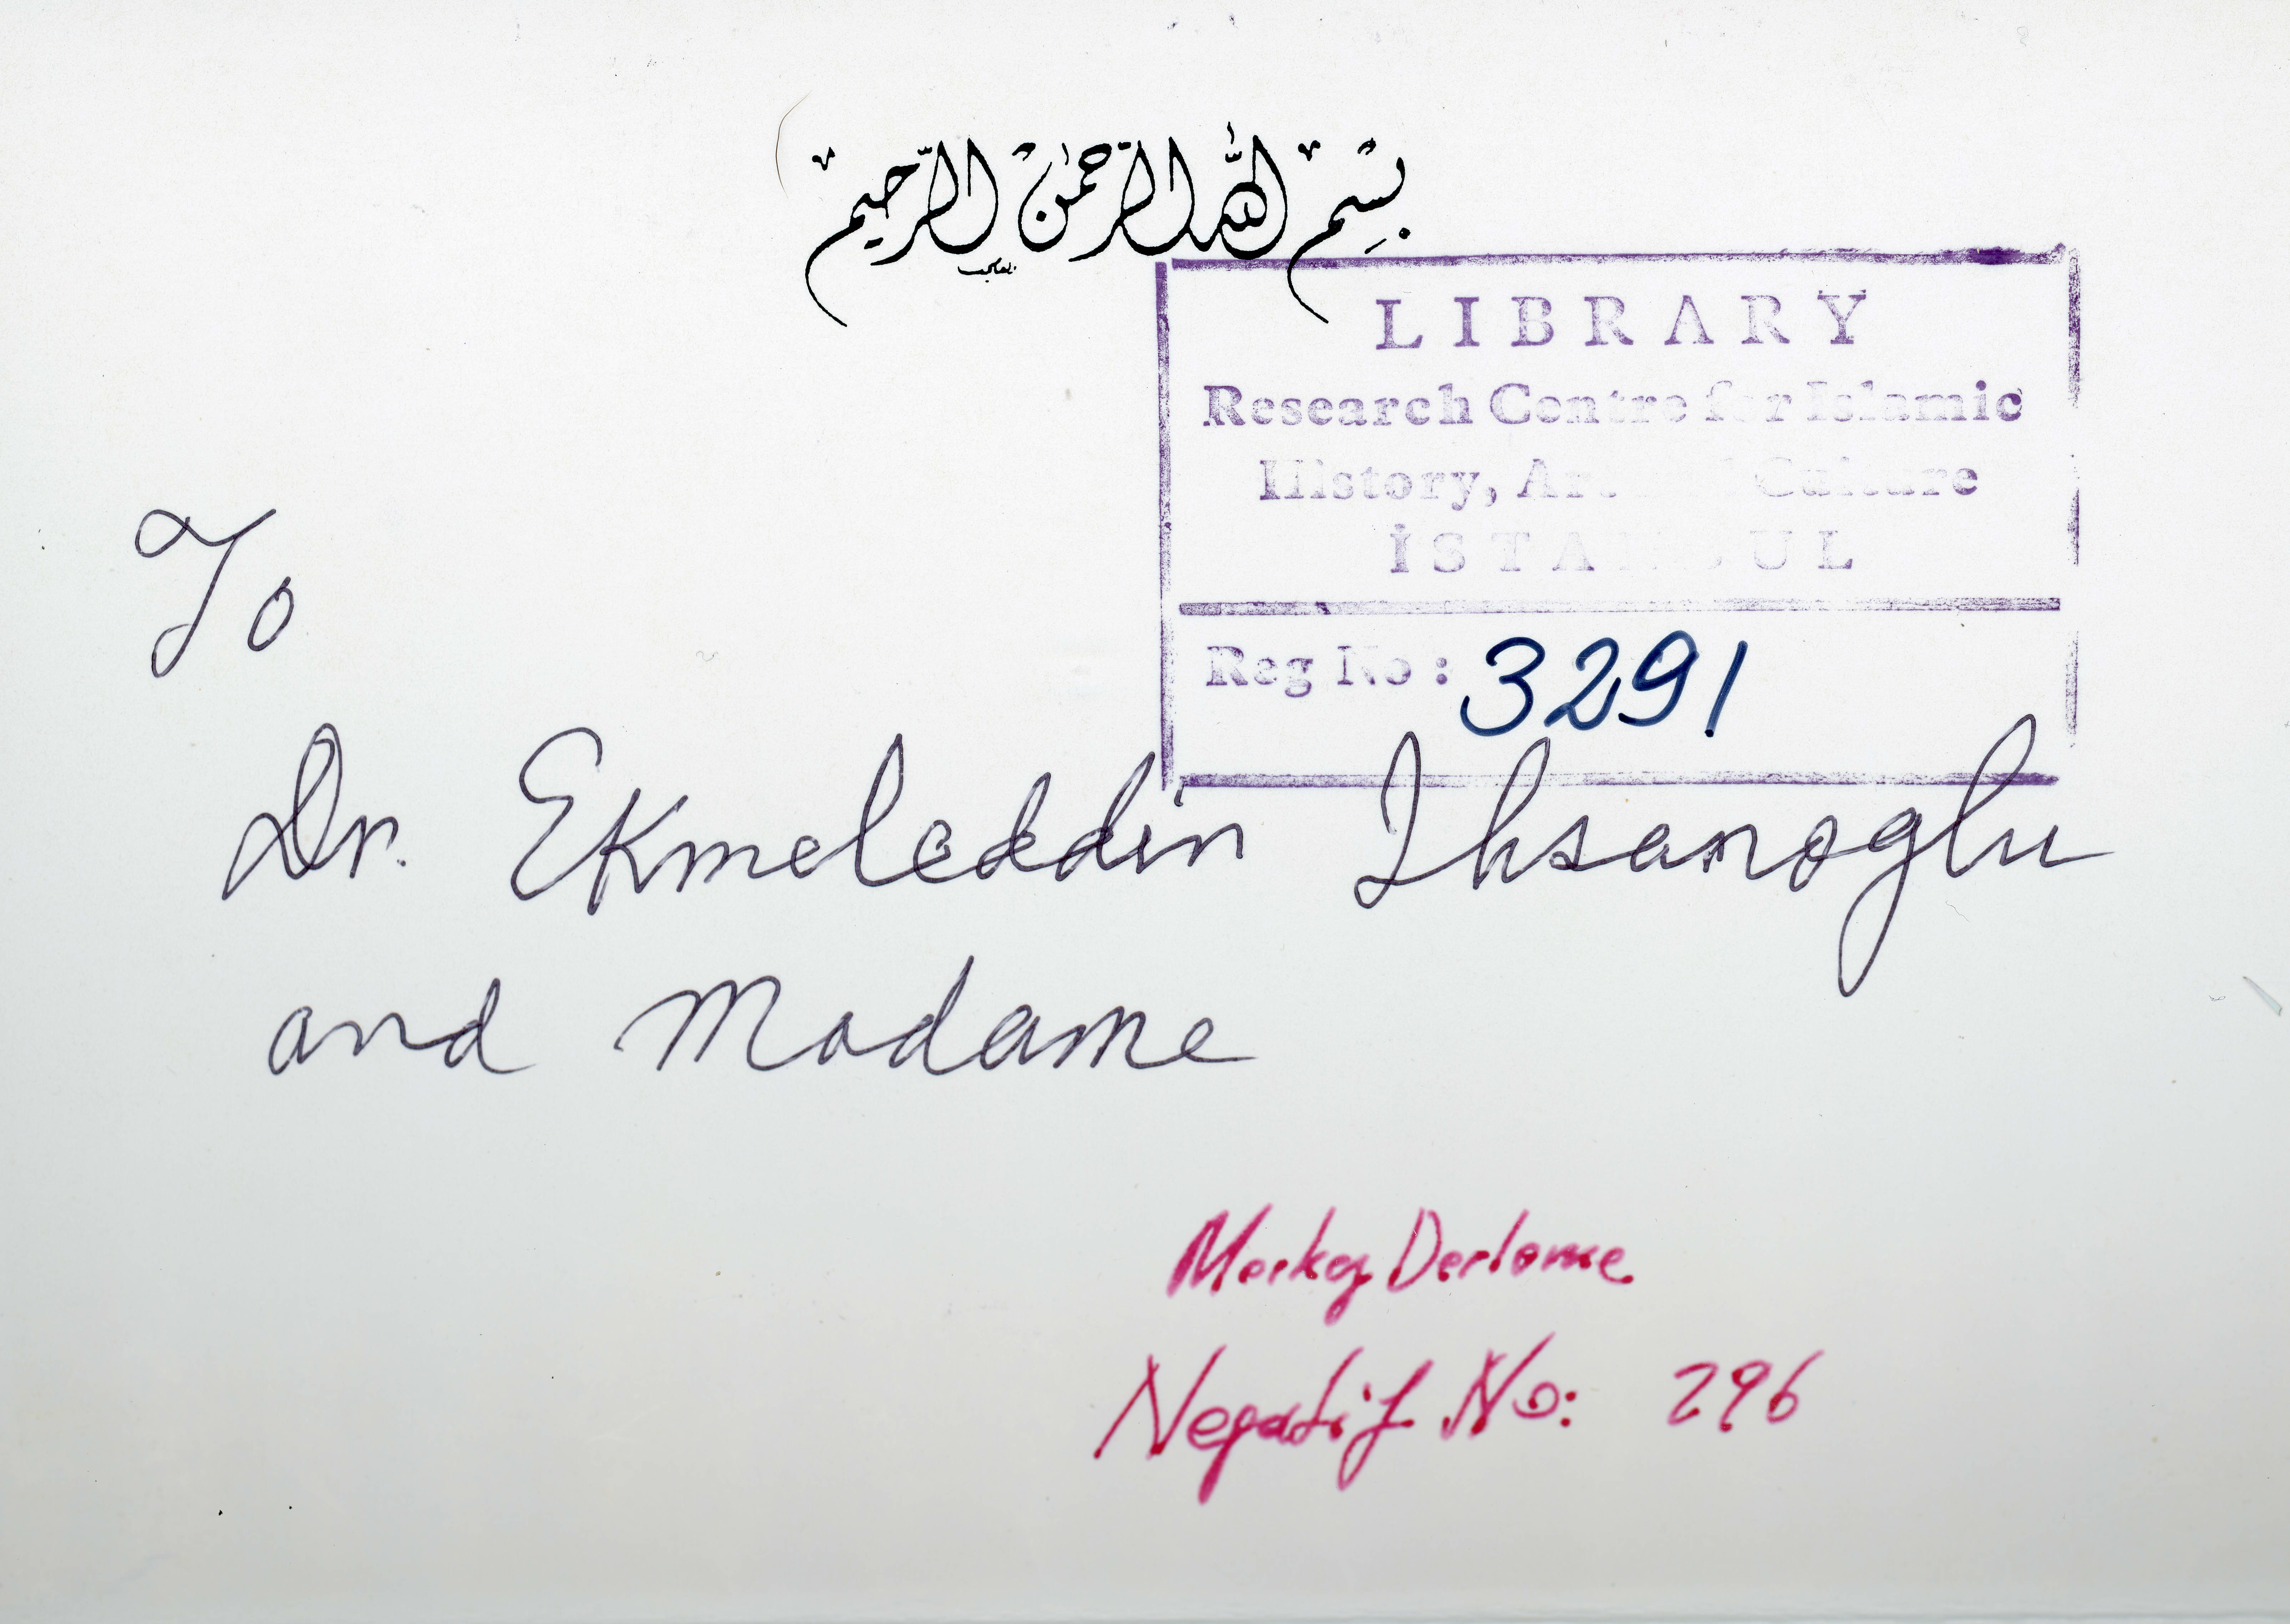 بسم الله الرحمن الرحيم
LIBRARY
Research Centre for Islamic
History, Art Culture
İSTANBUL
Reg No: 3291
To
Dr. Ekmeleddin Ihsanoglu
and Madame
Merkez Derleme
Negatif No: 296